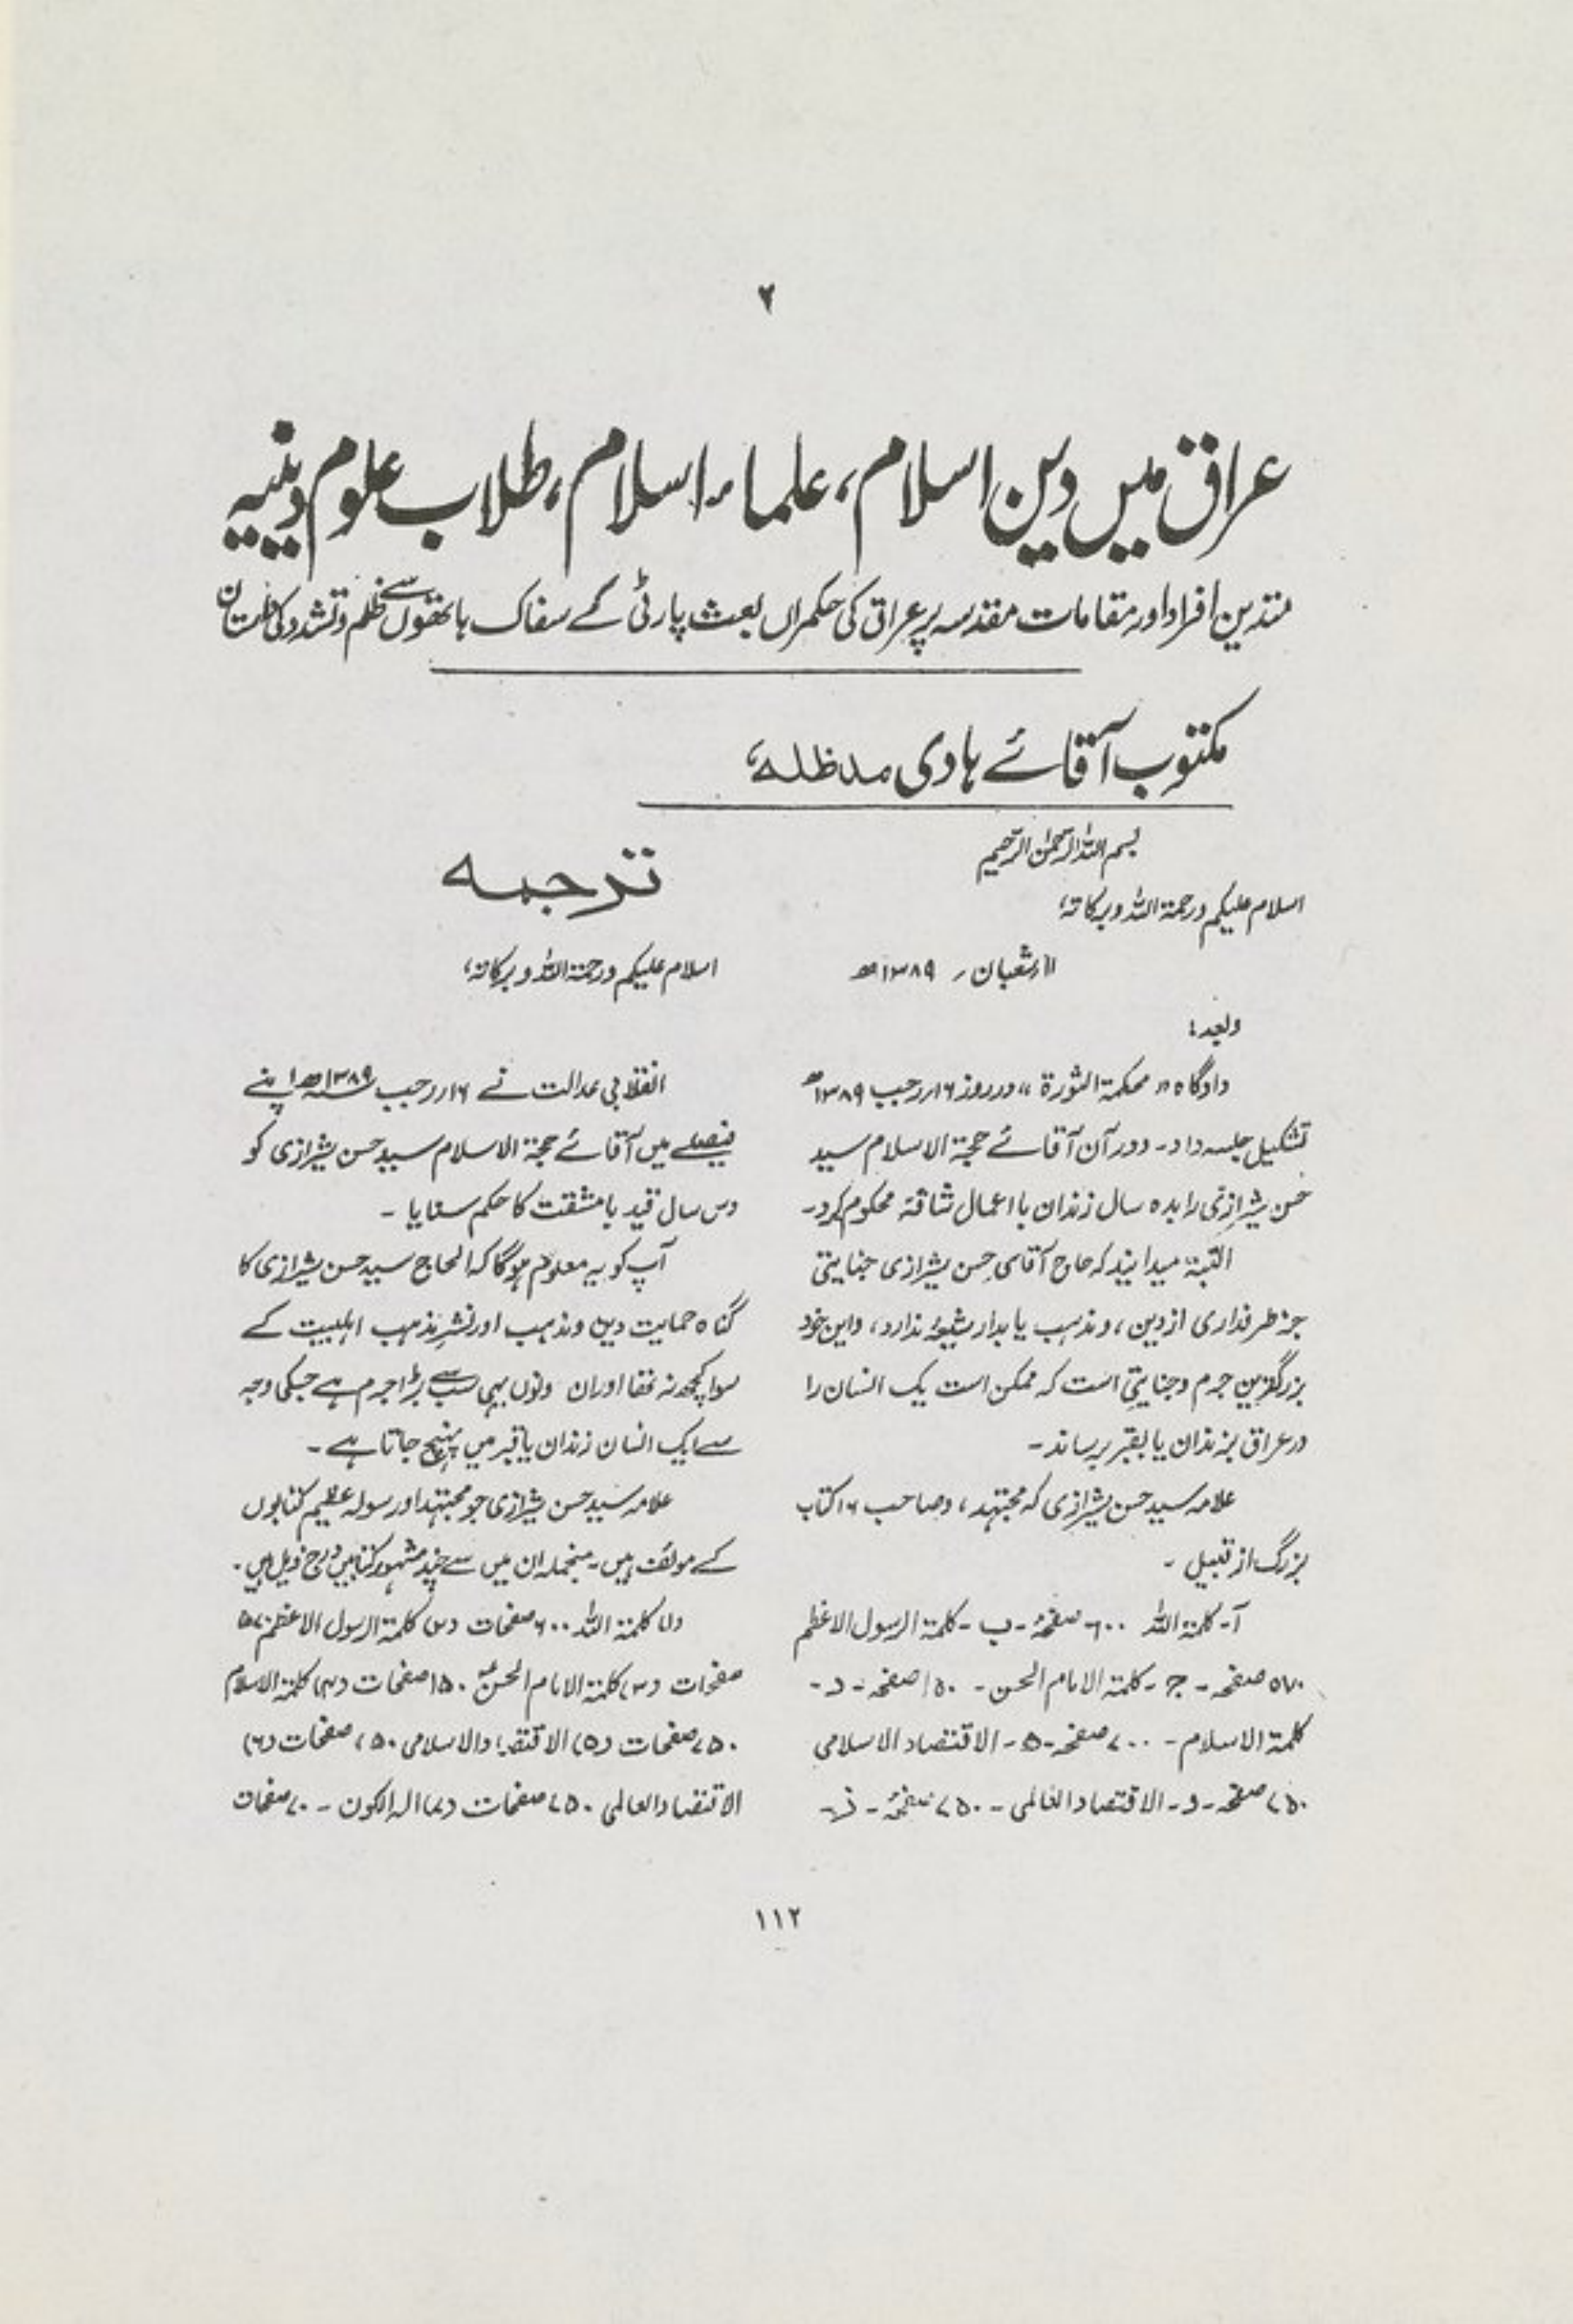 ۲
عراق میں دین اسلام، علماء اسلام، طلاب علوم دینیہ
متدین افراد اور مقامات مقدسہ پر عراق کی حکمراں بعث پارٹی کے سفاک ہاتھوں سے ظلم و تشدد کی داستان
مکتوب آقائے ہادی مدظلہ،
بسم اللہ الرحمٰن الرحیم
اسلام علیکم ورحمۃ اللہ وبرکاتہ،
۱۱ر شعبان ۱۳۸۹ھ
وبعد:
دادگاہ "محکمۃ الثورۃ" در روز ۱۶ر رجب ۱۳۸۹ھ
تشکیل جلسہ داد۔ ودر آن آقائے حجۃ الاسلام سید
حسن شیرازی را بدہ سال زندان با اعمال شاقۃ محکوم کرد۔
البتۃ میدانید کہ حاج آقای حسن شیرازی جنایتی
جز طرفداری از دین، و مذہب پایدار شیعۂ ندارد، واین خود
بزرگترین جرم وجنایتی است کہ ممکن است یک انسان را
در عراق بزندان یا بقبر برساند۔
علامہ سید حسن شیرازی کہ مجتہد، وصاحب ۱۶ کتاب
بزرگ از قبیل ۔
آ۔ کلمۃ اللہ ۶۰۰ صفحۂ۔ ب۔ کلمۃ الرسول الاعظم
۵۷۰ صفحہ۔ ج۔ کلمۃ الامام الحسن۔ ۱۵۰ صفحہ۔ د۔
کلمۃ الاسلام۔ ۷۰۰ صفحہ۔ ۵۔ الاقتصاد الاسلامی
۷۵۰ صفحہ۔ و۔ الاقتصاد العالمی۔ ۷۵۰ صفحۂ۔ ز۔
ترجمہ
اسلام علیکم ورحمۃ اللہ وبرکاتہ،
انقلابی عدالت نے ۱۶ر رجب ۱۳۸۹ھ اپنے
فیصلے میں آقائے حجۃ الاسلام سید حسن شیرازی کو
دس سال قید بامشقت کا حکم سنایا ۔
آپ کو یہ معلوم ہوگا کہ الحاج سید حسن شیرازی کا
گناہ حمایت دین ومذہب اور نشر مذہب اہلبیت کے
سوا کچھ نہ تھا اور ان دنوں یہی سب سے بڑا جرم ہے جسکی وجہ
سے ایک انسان زندان یا قبر میں پہنچ جاتا ہے ۔
علامہ سید حسن شیرازی جو مجتہد اور سولہ عظیم کتابوں
کے مولف ہیں۔ منجملہ ان میں سے چند مشہور کتابیں درج ذیل ہیں۔
(۱) کلمۃ اللہ ۶۰۰ صفحات (۲) کلمۃ الرسول الاعظم ۵۷۰
صفحات (۳) کلمۃ الامام الحسنؑ ۱۵۰ صفحات (۴) کلمۃ الاسلام
۷۵۰ صفحات (۵) الاقتصاد الاسلامی ۷۵۰ صفحات (۶)
الاقتصاد العالمی ۷۵۰ صفحات (۷) الہ الکون ۔ ۷۰ صفحات
۱۱۲